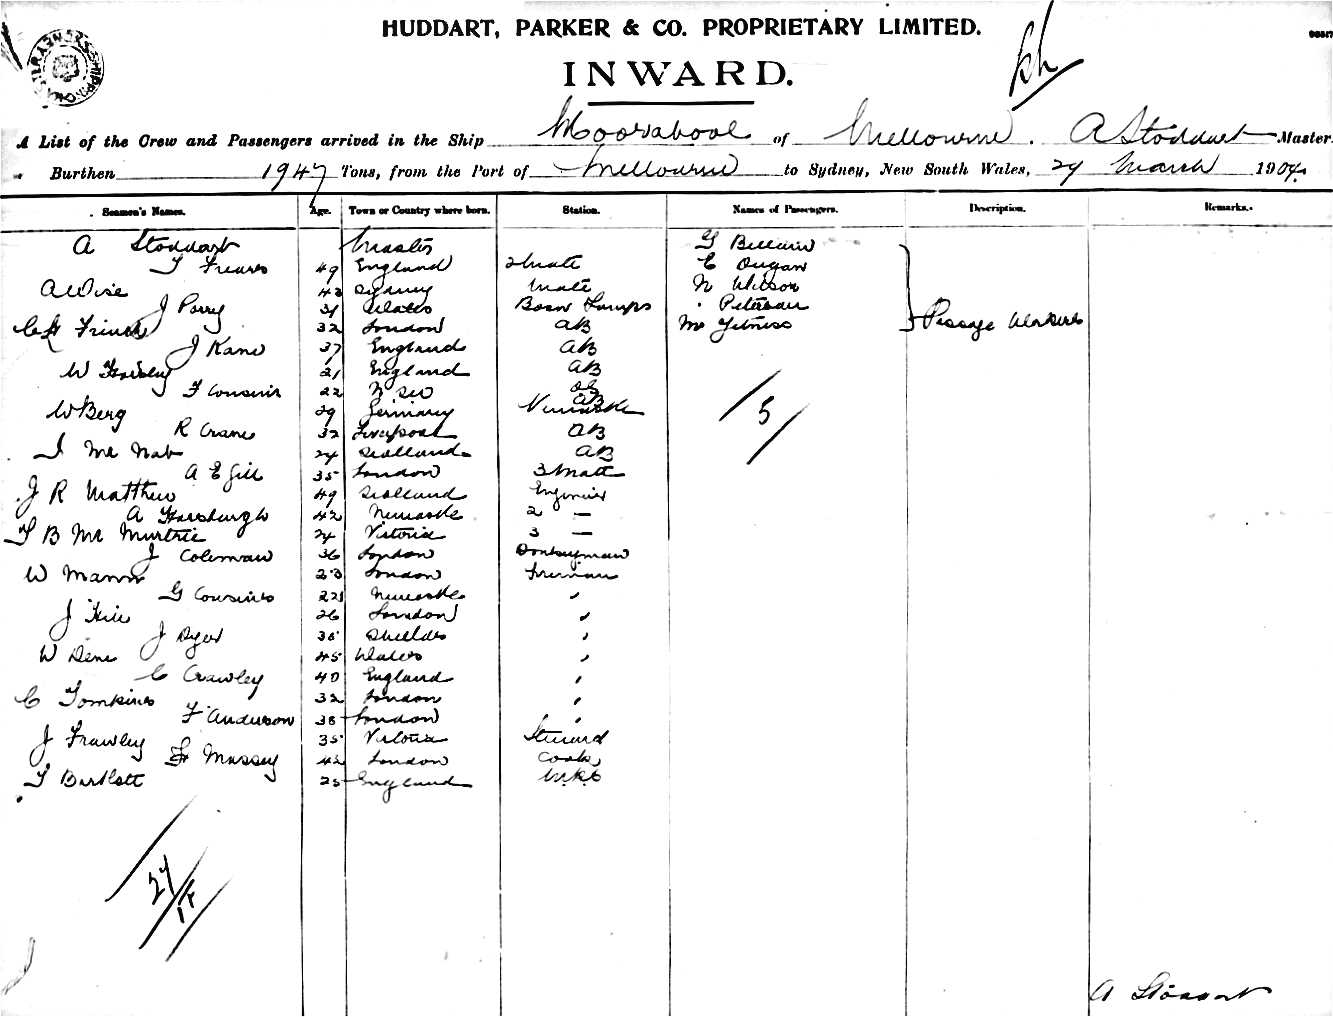 HUDDART, PARKER & CO. PROPRIETARY LIMITED.
INWARD.
A List of the Crew and Passengers arrived in the Ship Moorabool of Melbourne. A Stoddart Master
Burthen 1947 Tons, from the Port of Melbourne to Sydney, New South Wales, 29 March 1904.
Seamen's Names. Age. Town or Country where born. Station. Names of Passengers. Description. Remarks.
A Stoddart Master G
49 England 2 Mate C Dugan
A Wise 42 Sydney Mate N Wilson
J Parry 31 Wales Bosn Lamps Peterson
32 London AB Mr Passage Workers
J Kane 37 England AB
W 21 England AB
F Cousins 22 N S W OS
W Berg 29 Germany AB
R Crane 32 Liverpool AB 5
Mc Nab 24 Scotland AB
A E Gill 35 London 3 Mate
J R Matthew 49 Scotland Engineer
A Horsburgh 42 Newcastle 2 —
T B Mc Murtrie 24 Victoria 3 —
J Coleman 36 London Donkeyman
W Mann 23 London Fireman
G Cousins 22 Newcastle "
J Hill 26 London "
J Dyer 35 Shields "
W Dene 45 Wales "
C Crawley 40 England "
C Tomkins 32 London "
F Anderson 38 London "
J Frawley 35 Victoria Steward
Massey 42 London Cook
T Bartlett 25 England
27
A Stoddart